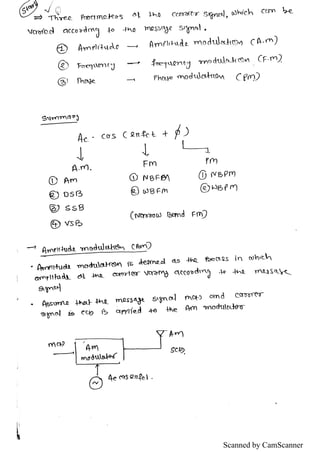 Start
⇒ Three Parameters of the carrier signal, which can be
varied according to the message signal.
① Amplitude → Amplitude modulation (A.m)
② Frequency → frequency modulation (F.m)
③ Phase → Phase modulation (Pm)
Summary
Ac . cos (2πfct + ϕ)
A.m. Fm Pm
① Am ① NBFM ① NBPM
② DSB ② WBFm ② WBPM
③ SSB
④ VSB (Narrow Band Fm)
→ Amplitude modulation (Am)
• Amplitude modulation is defined as the process in which
amplitude of the carrier varying according to the message
signal
• Assume that the message signal m(t) and carrier
signal is c(t) is applied to the Am modulator
Am
m(t) Am modulator S(t)
Ac cos 2πfct .
Scanned by CamScanner